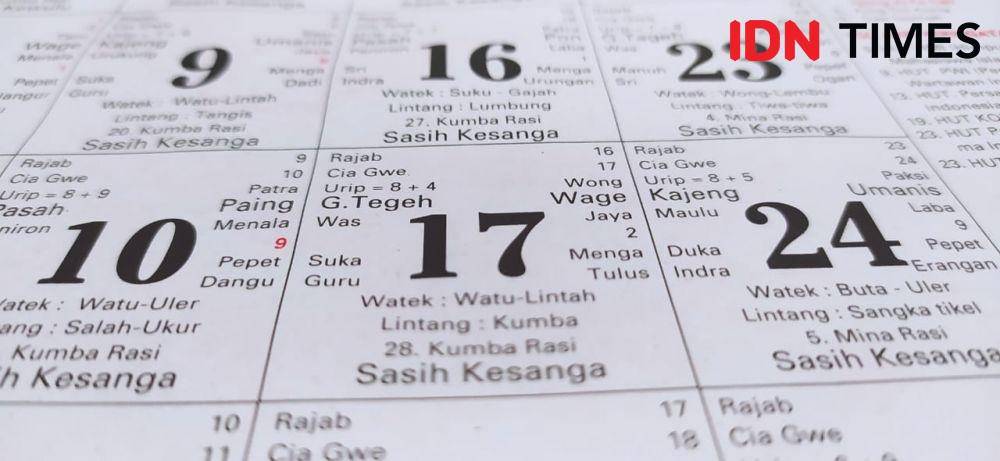 IDN TIMES
9
Suka
Guru
Menga
Dadi
Watek : Watu-Lintah
Lintang : Tangis
20. Kumba Rasi
Sasih Kesanga
16
Sri
Indra
Menga
Urungan
Watek : Suku - Gajah
Lintang : Lumbung
27. Kumba Rasi
Sasih Kesanga
23
Was
Manuh
Sri
Pepet
Ogan
Watek : Wong-Lembu
Lintang : Tiwa-tiwa
4. Mina Rasi
Sasih Kesanga
Rajab 9
Cia Gwe 10
Urip = 8 + 9 Patra
Pasah Paing
Menala
10
9
Pepet
Dangu
Watu-Uler
Salah-Ukur
Kumba Rasi
Kesanga
Rajab 16
Cia Gwe 17
Urip = 8 + 4 Wong
G.Tegeh Wage
Was Jaya
17
2
Suka Menga
Guru Tulus
Watek : Watu-Lintah
Lintang : Kumba
28. Kumba Rasi
Sasih Kesanga
Rajab 23
Cia Gwe 24
Urip = 8 + 5 Paksi
Kajeng Umanis
Maulu Laba
24
9
Duka Pepet
Indra Erangan
Watek : Buta - Uler
Lintang : Sangka tikel
5. Mina Rasi
Sasih Kesanga
10
11
Rajab 17
Cia Gwe 18
Rajab
Cia Gwe